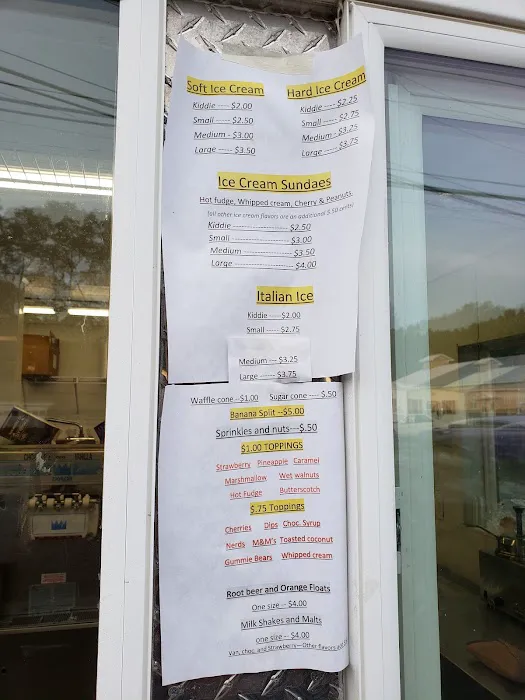 Soft Ice Cream
Kiddie ---- $2.00
Small ----- $2.50
Medium - $3.00
Large ---- $3.50
Hard Ice Cream
Kiddie ---- $2.25
Small ----- $2.75
Medium - $3.25
Large ---- $3.75
Ice Cream Sundaes
Hot fudge, Whipped cream, Cherry & Peanuts.
(all other ice cream flavors are an additional $.50 cents)
Kiddie -------------------- $2.50
Small --------------------- $3.00
Medium ------------------ $3.50
Large --------------------- $4.00
Italian Ice
Kiddie ---- $2.00
Small ---- $2.75
Medium --- $3.25
Large ----- $3.75
Waffle cone --$1.00 Sugar cone ---- $.50
Banana Split --$5.00
Sprinkles and nuts---$.50
$1.00 TOPPINGS
Strawberry Pineapple Caramel
Marshmallow Wet walnuts
Hot Fudge Butterscotch
$.75 Toppings
Cherries Dips Choc. Syrup
Nerds M&M's Toasted coconut
Gummie Bears Whipped cream
Root beer and Orange Floats
One size -- $4.00
Milk Shakes and Malts
one size -- $4.00
Van, choc, and Strawberry--Other flavors